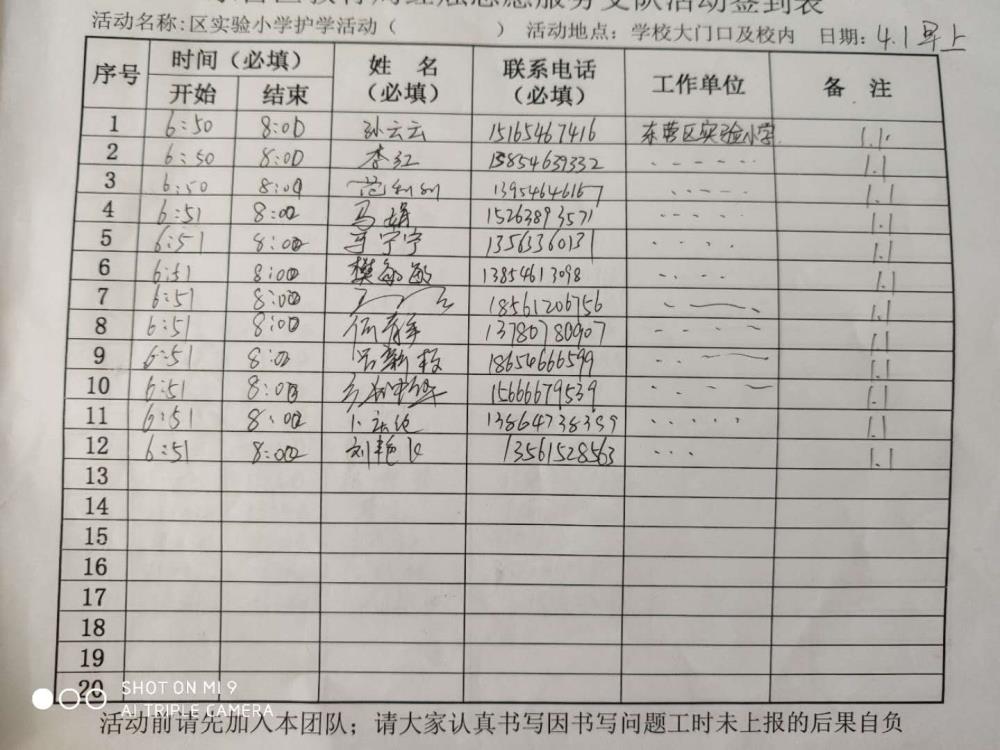 活动签到表
活动名称:区实验小学护学活动（ ） 活动地点：学校大门口及校内 日期：4.1早上
序号 时间（必填） 姓 名（必填） 联系电话（必填） 工作单位 备 注
开始 结束
1 6:50 8:00 孙云云 15165467416 东营区实验小学 1.1
2 6:50 8:00 李红 15854639332 1.1
3 6:50 8:00 13954646167 1.1
4 6:51 8:00 马娟 15263893571 1.1
5 6:51 8:00 宁宁 13563360131 1.1
6 6:51 8:00 樊敏敏 13854613098 1.1
7 6:51 8:00 18561206756 1.1
8 6:51 8:00 13780780907 1.1
9 6:51 8:00 吕新 18654666599 1.1
10 6:51 8:00 15666679539 1.1
11 6:51 8:00 13864738389 1.1
12 6:51 8:00 刘艳 13561528563 1.1
13
14
15
16
17
18
19
20
SHOT ON MI 9
AI TRIPLE CAMERA
活动前请先加入本团队；请大家认真书写因书写问题工时未上报的后果自负